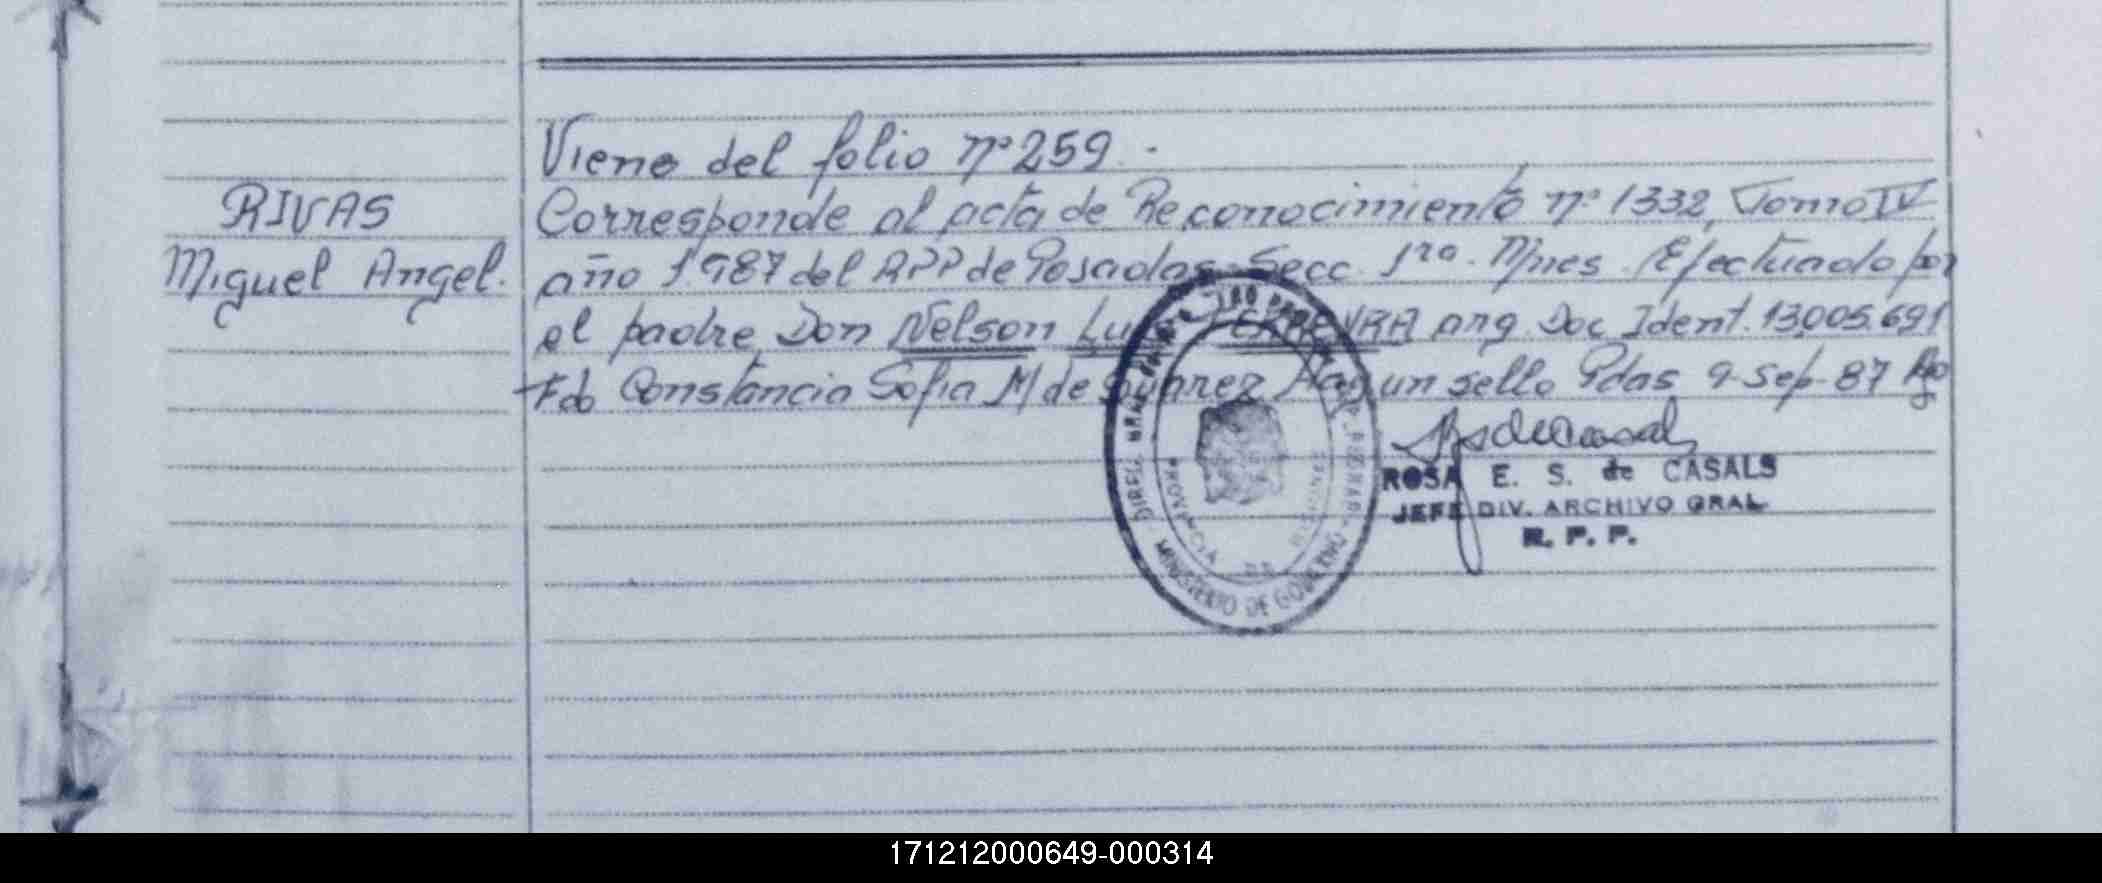 Viene del folio nº 259.-
RIVAS
Miguel Angel.
Corresponde al acta de Reconocimiento nº 1332, Tomo IV
año 1987 del RPP de Posadas Secc. 1ra. Mnes. Efectuado por
el padre Don Nelson arg. Doc Ident. 13.005.691
Fdo Constancia Sofia M de Suarez Hay un sello Pdas 9-Sep-87
ROSA E. S. de CASALS
JEFE DIV. ARCHIVO GRAL
R. P. P.
MINISTERIO DE GOBIERNO
PROVINCIA DE MISIONES
171212000649-000314